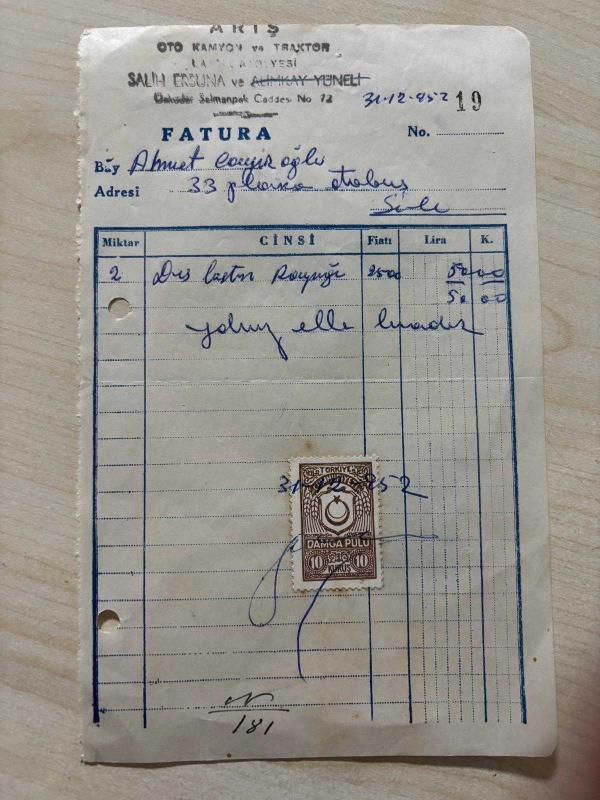 ARIŞ
OTO KAMYON ve TRAKTÖR
SALİH ERSUNA ve ALIMKAY YÜNELİ
Üsküdar Selmanpak Caddesi No 72
31-12-952 19
FATURA No.
Bay Ahmet
Adresi 33 plaka otobüs
Şile
Miktar CİNSİ Fiatı Lira K.
2 Dış lastik kaynağı 2500 50 00
50 00
yalnız elli liradır
TÜRKİYE
31-12-952
DAMGA PULU
10 10
KURUŞ
N
181